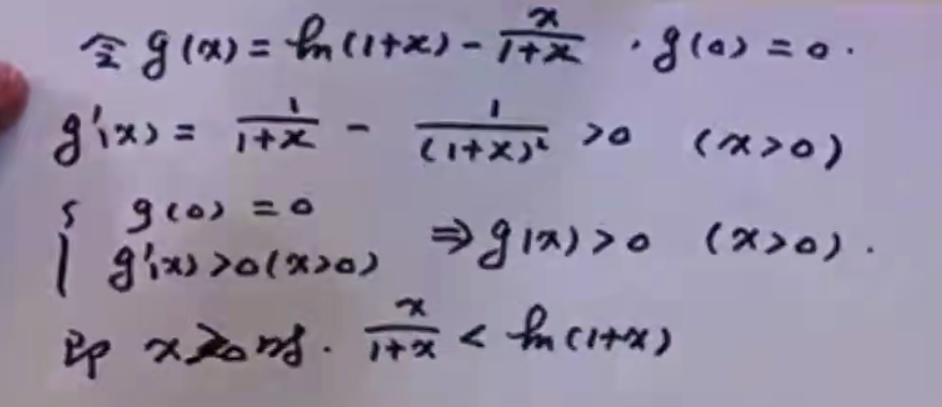 令 g(x) = ln(1+x) - x/(1+x) . g(0) = 0 .
g'(x) = 1/(1+x) - 1/(1+x)² >0 (x>0)
{ g(0) = 0
g'(x) >0 (x>0) ⇒ g(x) >0 (x>0) .
即 x>0时. x/(1+x) < ln(1+x)